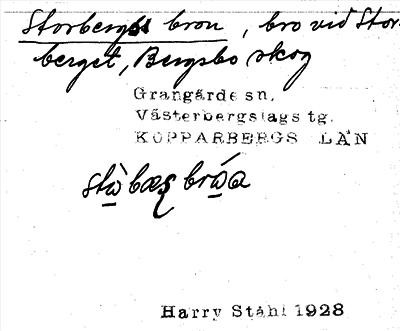 Storbergsbron, bro vid Stor-
berget, Bergsbo skog
Grangärde sn,
Västerbergslags tg.
KOPPARBERGS LÄN
stòbæʂ bróa
Harry Ståhl 1928